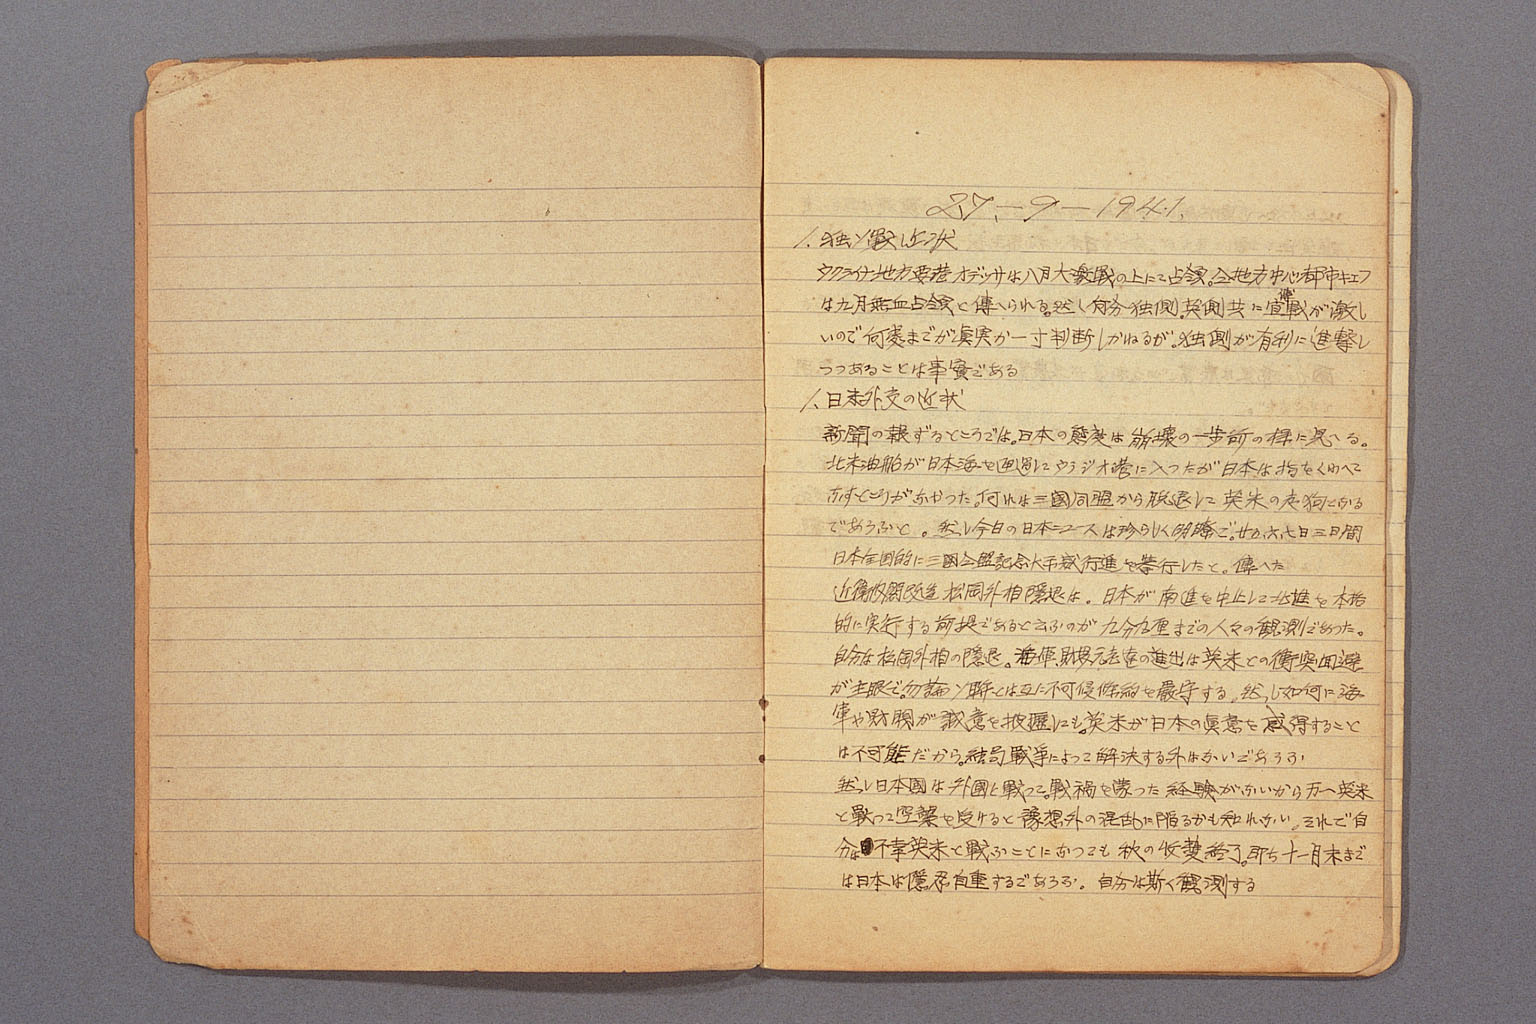 27.-9-1941.
1.独ソ戰近状
ウクライナ地方要港オデッサは八月大激戰の上にて占領。仝地方中心都市キエフ
は九月無血占領と傳へられる。然し何分独側。英側共に宣傳戰が激し
いので何処までが眞実か一寸判断しかねるが。独側が有利に進撃し
つつあることは事實である
1.日本外交の近状
新聞の報ずるところでは。日本の態度は崩壊の一歩前の様に見へる。
北米油船が日本海を通過してウラジオ港に入つたが日本は指をくわへて
なすところがなかつた。何れは三國同盟から脱退して英米の走狗となる
であろふと。然し今日の日本ニュースは珍らしく明瞭で。廿五、六、七日三日間
日本全国的に三國仝盟記念大示威行進を挙行したと。傳へた
近衛内閣改造松岡外相隠退は。日本が南進を中止して北進を本格
的に実行する前提であると云ふのが九分九厘までの人々の観測であつた。
自分は松岡外相の隠退。海軍、財界元老達の進出は英米との衝突回避
が主眼で。勿論ソ聯とは互に不可侵條約を嚴守する。然し如何に海
軍や財閥が誠意を披瀝しても。英米が日本の眞意を感得すること
は不可能だから。結局戰争によつて解決する外はないであろふ
然し日本國は外國と戰つて。戰禍を蒙つた経験がないから万一英米
と戰つて空襲を受けると豫想外の混乱に陥るかも知れない。それで自
分は不幸英米と戰ふことになつても秋の收穫終了。即ち十一月末まで
は日本は隠忍自重するであろふ。自分は斯く観測する